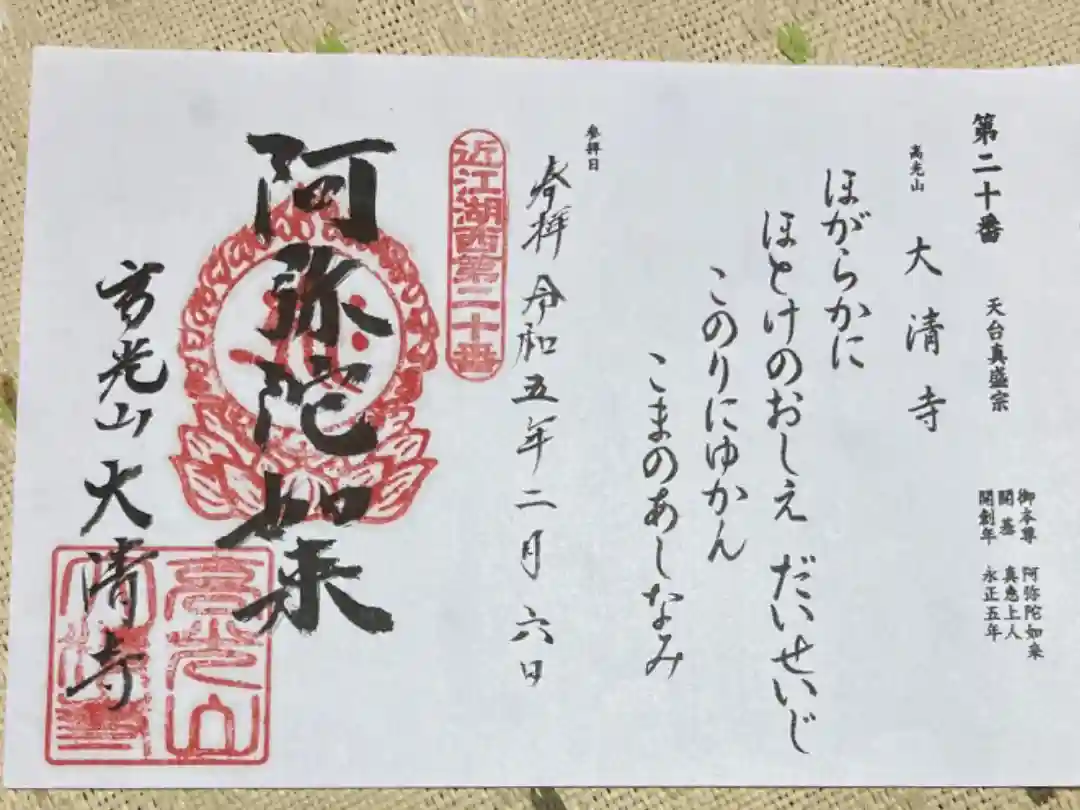 第二十番 天台真盛宗
御本尊 阿弥陀如来
開基 真恵上人
開創年 永正五年
高光山 大清寺
ほがらかに
ほとけのおしえ だいせいじ
このりにゆかん
こまのあしなみ
参拝日
奉拝 令和五年二月六日
近江湖西第二十番
阿弥陀如来
高光山大清寺
高光山
大清寺